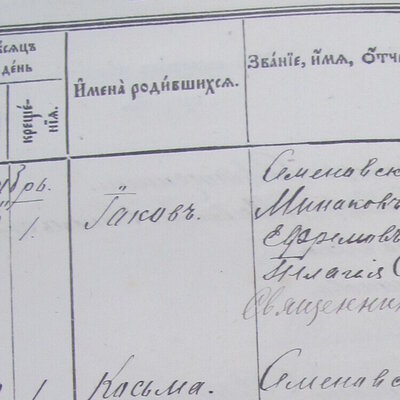 мѣсяцъ
день
креще-
нїя.
И҆мена̀ роди́вшихся.
Зва́нїе, и҆́мя, ѻ҆́тче
брь.
1.
Іаковъ.
Семеновск
Минаковъ
Ефремовъ
Пелагія
Священник
1.
Косьма.
Семеновс